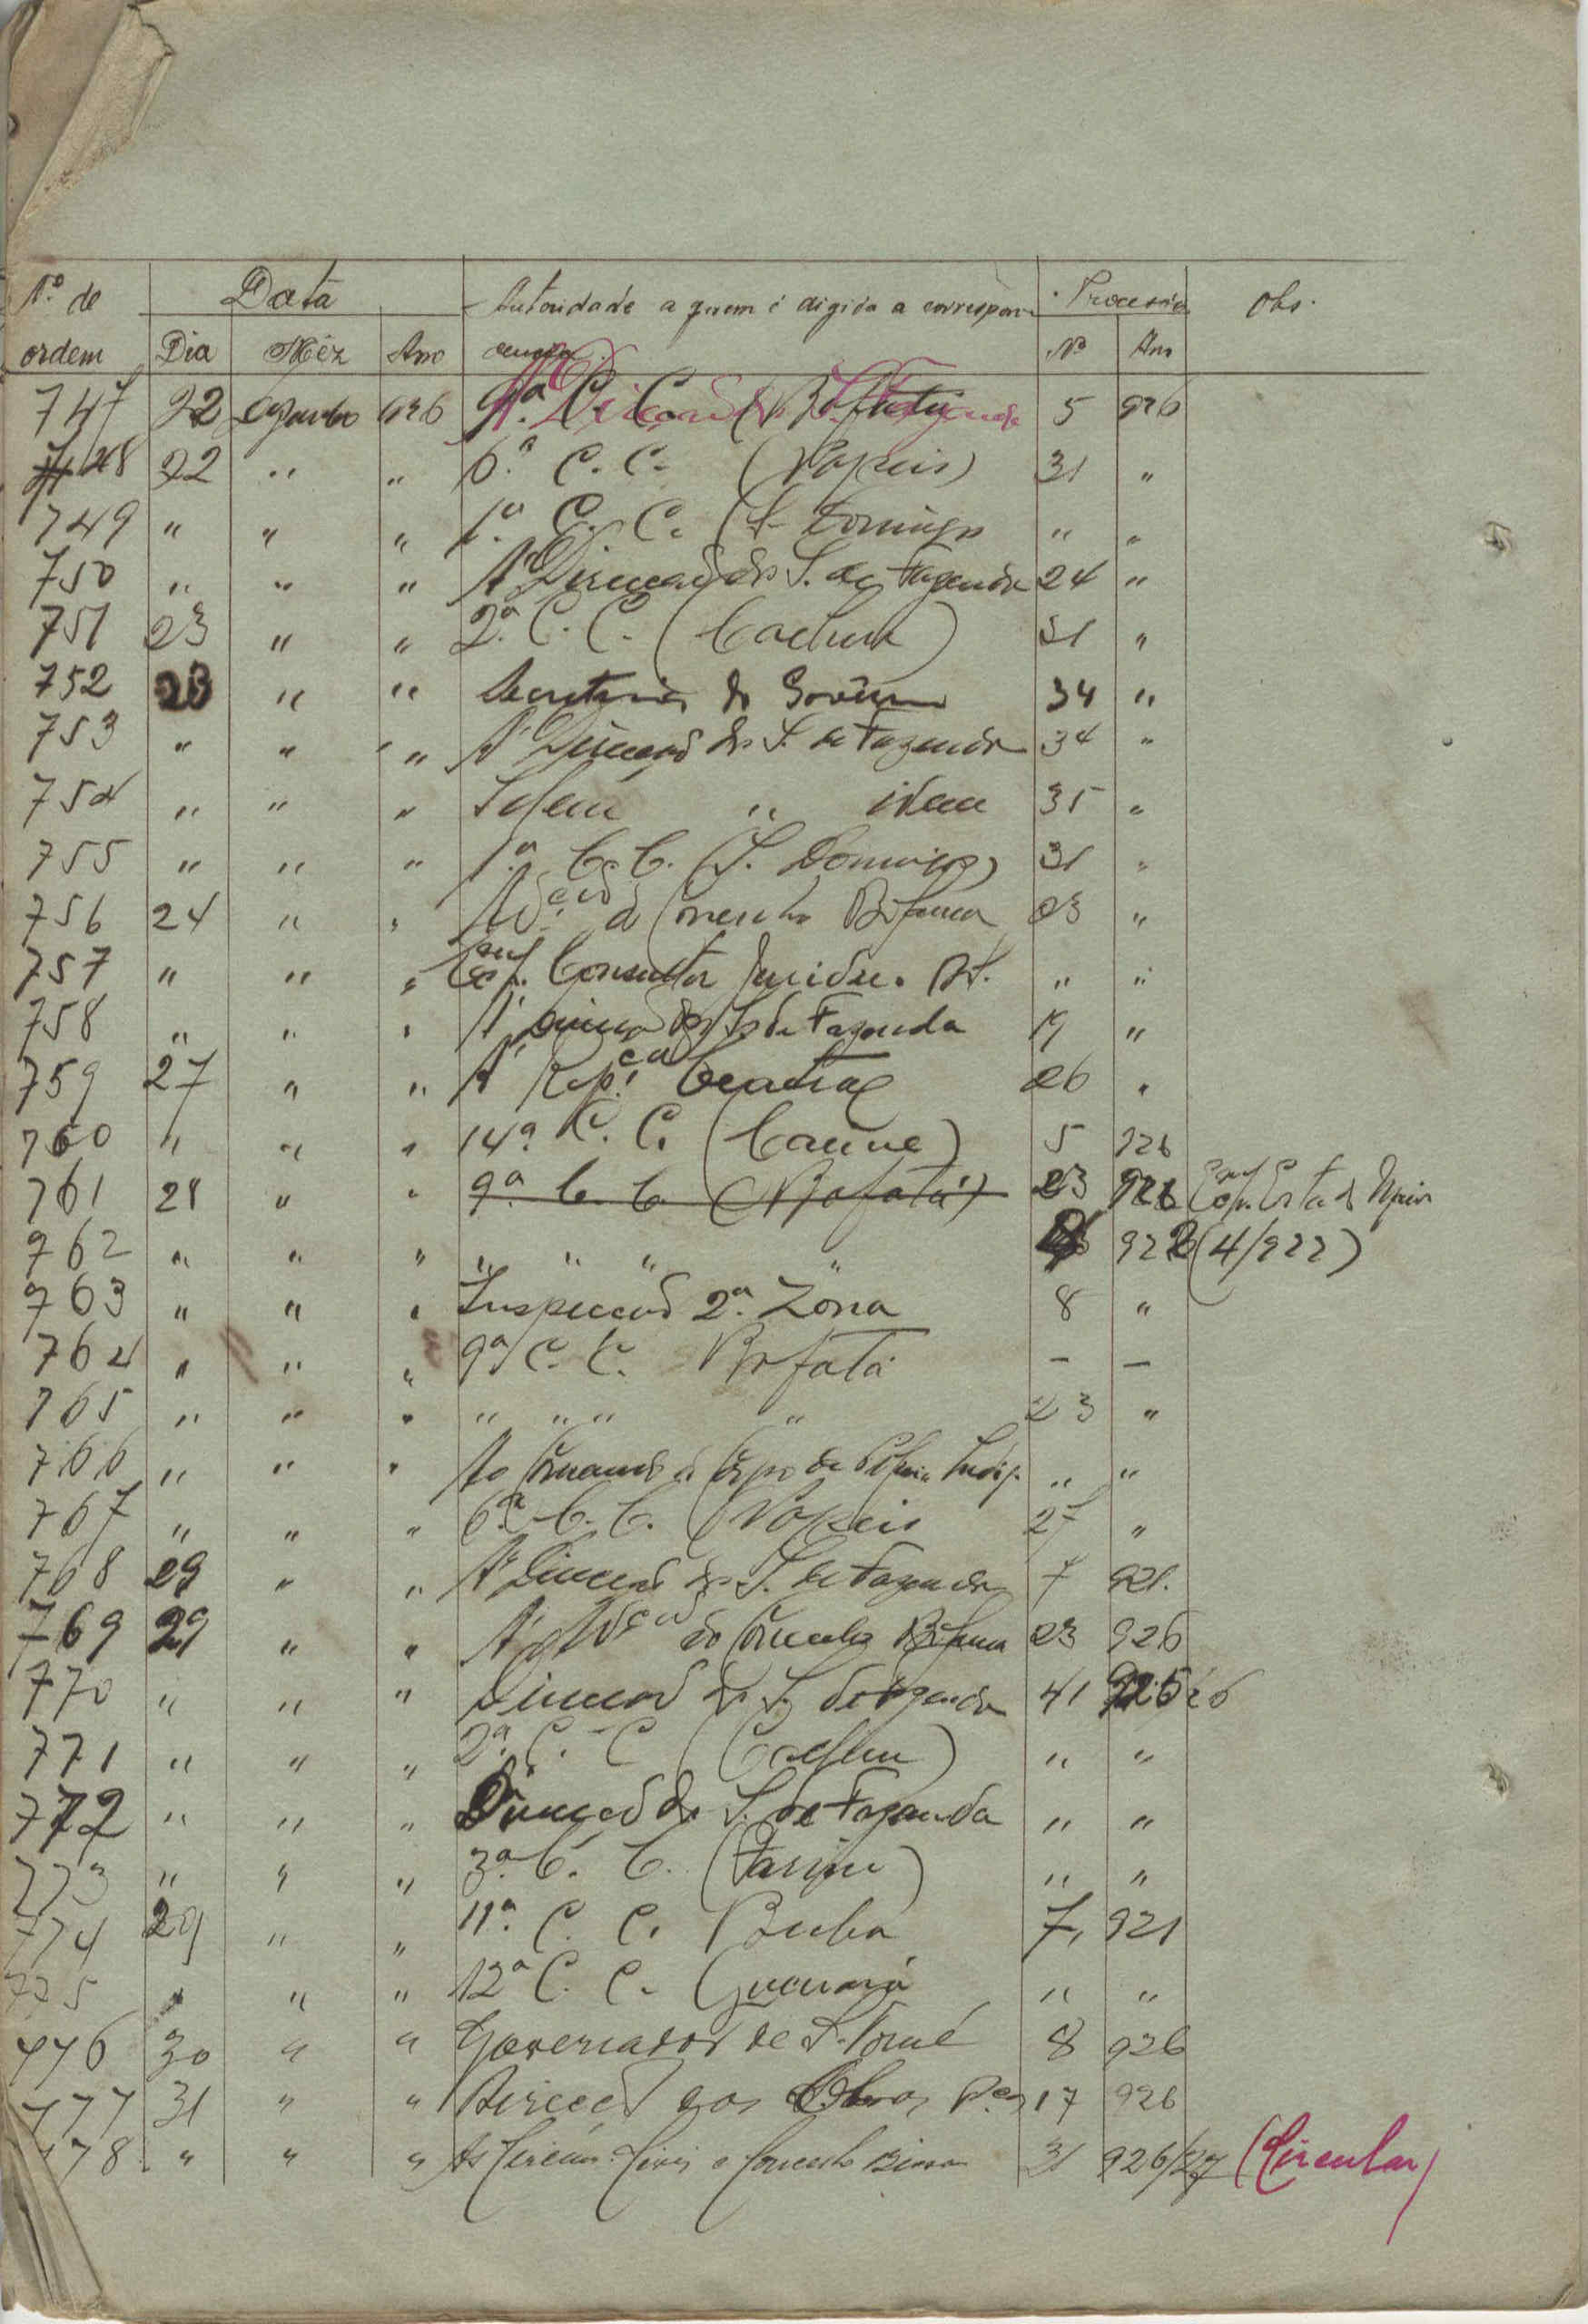 Nº de Data Autoridade a quem é digida a correspon Processo Obs.
ordem Dia Mêz Ano dencia. Nº Ano
747 22 Dezembro 926 9ª C. C. 5 926
748 22 " " 6ª C. C. (Papeis) 31 "
749 " " " 1ª C. C. (S. Domingos " "
750 " " " A' Direcção dos S. de Fazenda 24 "
751 23 " " 2ª C. C. (Cacheu) 31 "
752 23 " " Secretaria do Govêrno 34 "
753 " " " A' Direcção dos S. de Fazenda 34 "
754 " " " Idem " idem 35 "
755 " " " 1ª C. C. (S. Domingos) 31 "
756 24 " " Adm.ção do Concelho Bolama 23 "
757 " " " Conf. Consultor Juridico " "
758 " " " A' Direcção dos S. de Fazenda 19 "
759 27 " " A' Rep.ção Central 26 "
760 " " " 14ª C. C. (Cacine) 5 926
761 28 " " 9ª C. C. (Bafatá) 23 926 Conf.
762 " " " " " " " 922 (4/922)
763 " " " Inspecção 2ª Zona 8 "
764 " " " 9ª C. C. Bafatá - -
765 " " " " " " " 23 "
766 " " " Ao Comando do Corpo de Policia Indig. " "
767 " " " 6ª C. C. (Papeis 27 "
768 29 " " A' Direcção dos S. de Fazenda 7 921.
769 29 " " A' Adm.ção do Concelho Bolama 23 926
770 " " " Direcção dos S. de Fazenda 41 926
771 " " " 2ª C. C. (Cacheu) " "
772 " " " Direcção dos S. de Fazenda " "
773 " " " 3ª C. C. (Farim) " "
774 29 " " 11ª C. C. Buba 7, 921
775 " " " 12ª C. C. " "
776 30 " " Governador de S. Tomé 8 926
777 31 " " Direcção das Obras P.cas 17 926
778 " " " As Circuns. Civis e Concelho Bissau 31 926/27 (Circular)